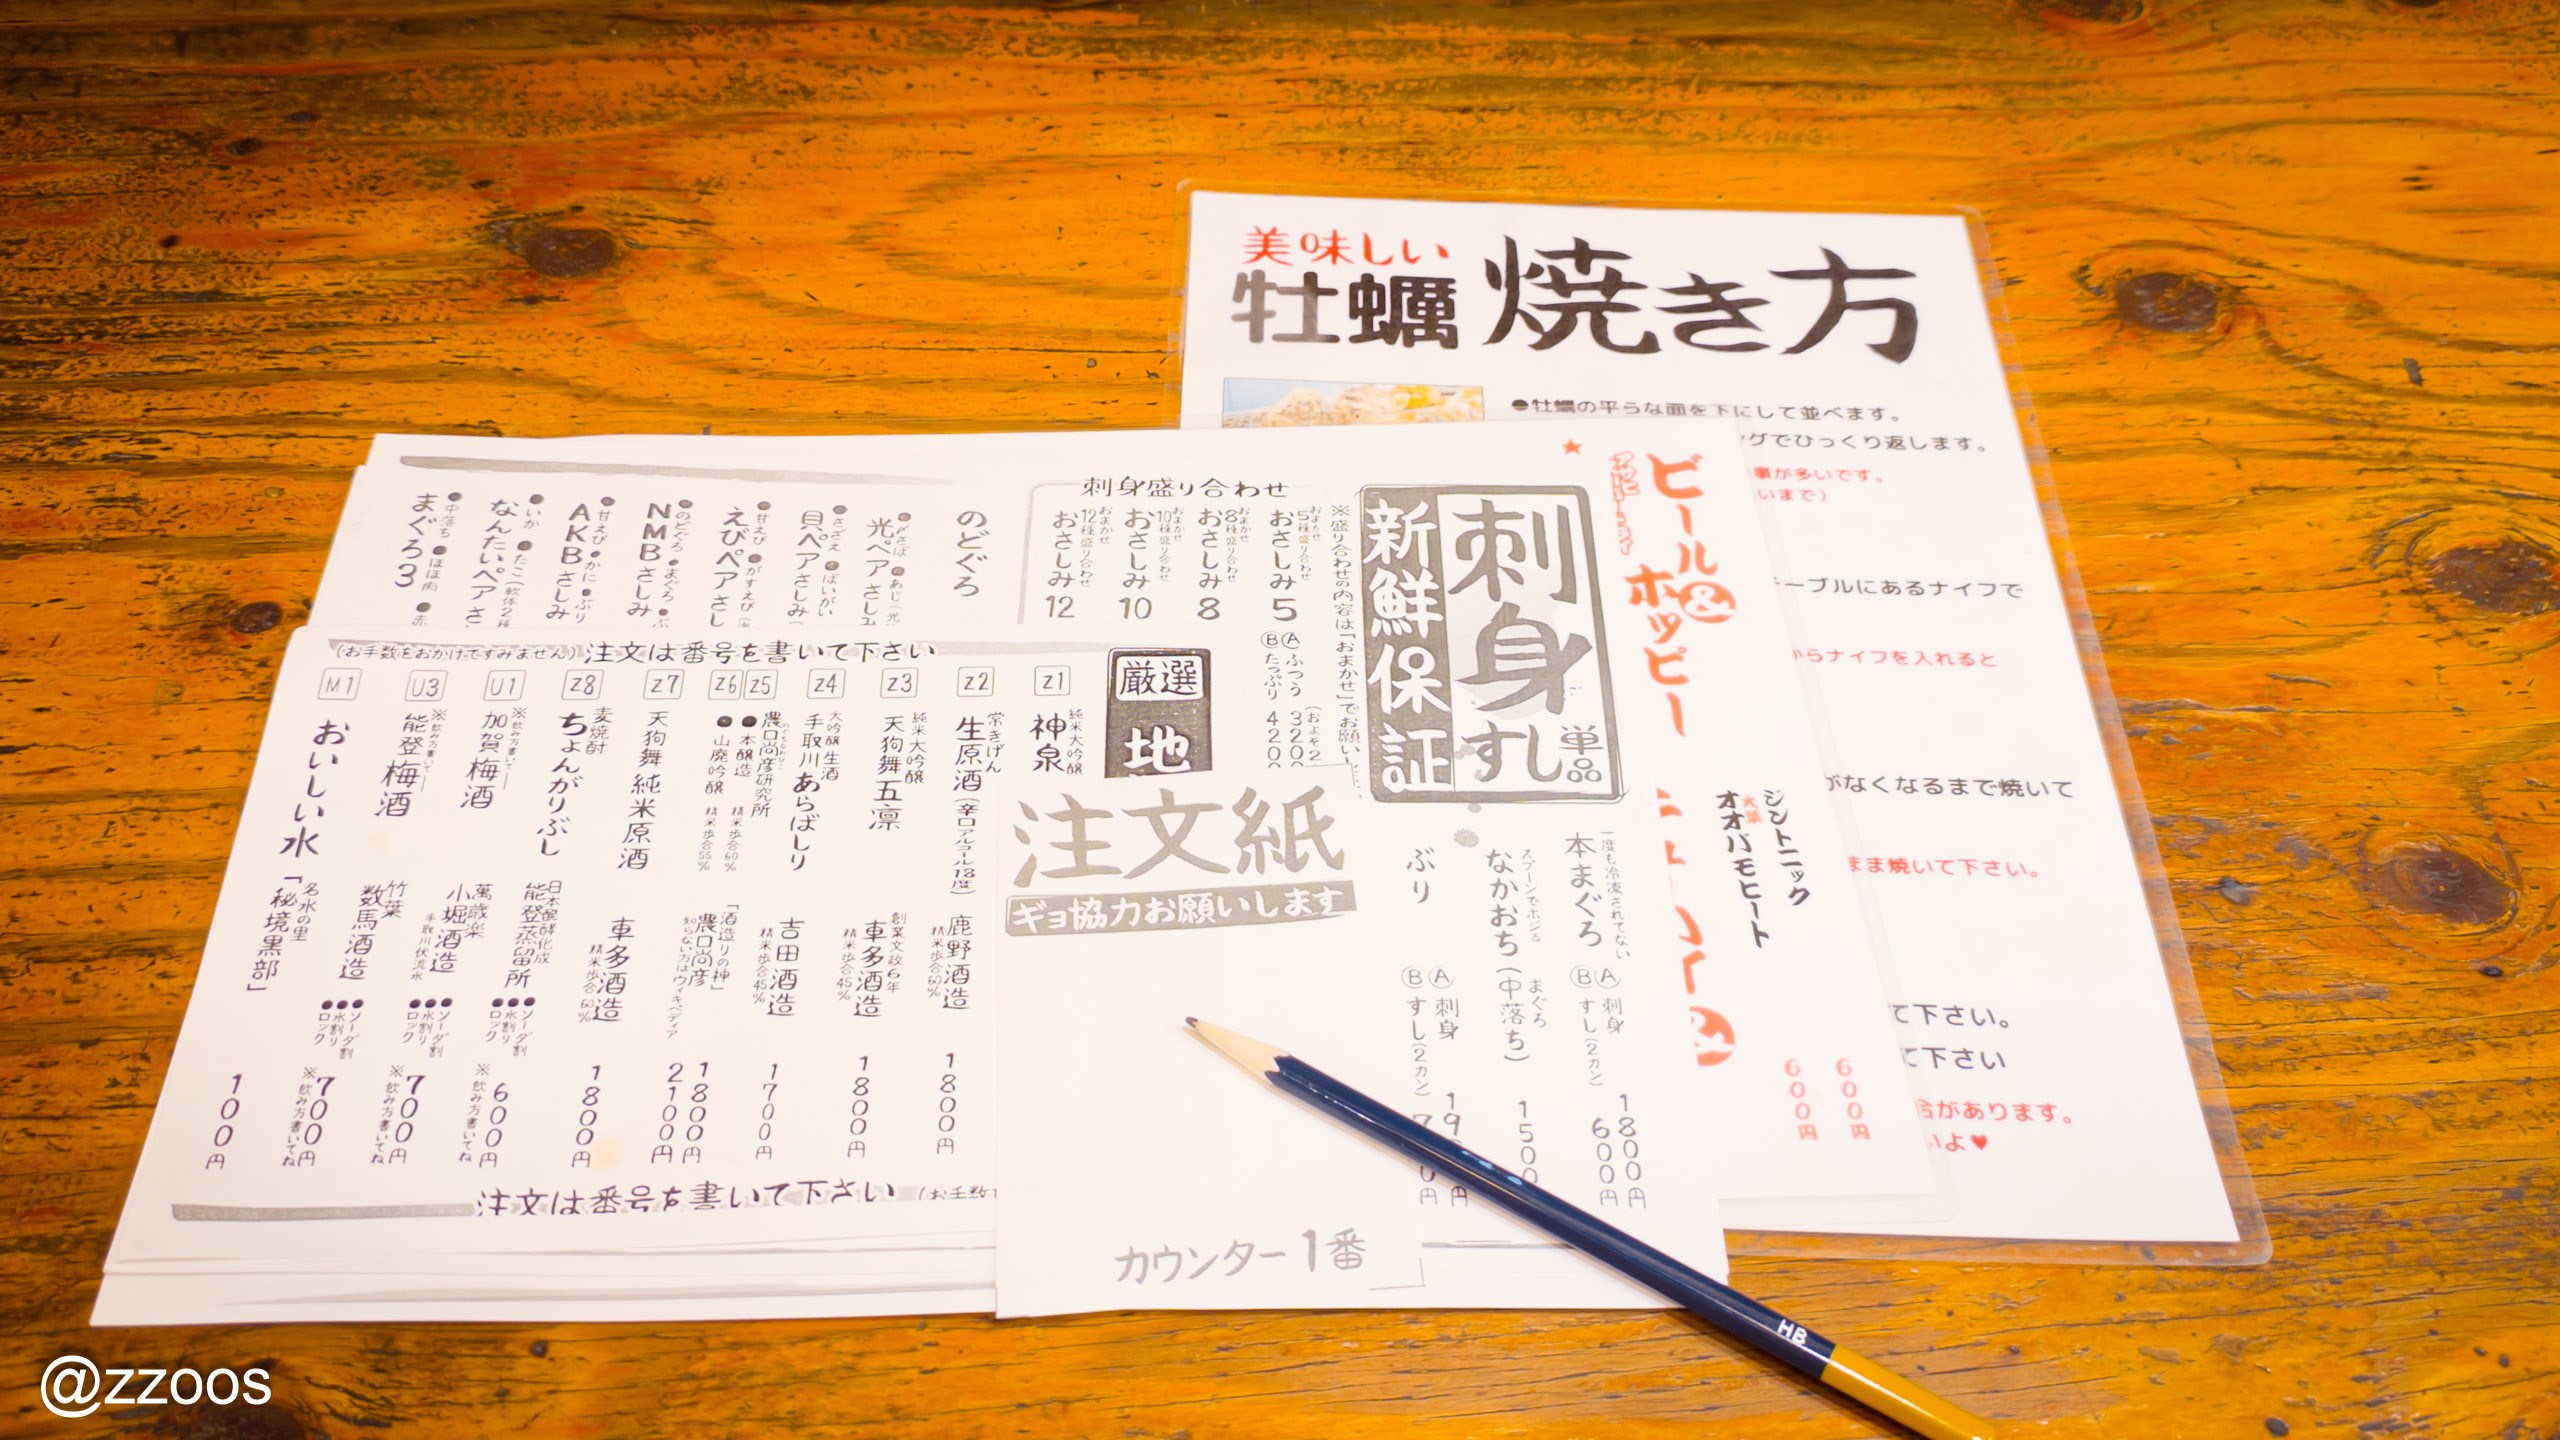 美味しい
牡蠣 焼き方
●牡蠣の平らな面を下にして並べます。
グでひっくり返します。
事が多いです。
いまで）
テーブルにあるナイフで
からナイフを入れると
がなくなるまで焼いて
まま焼いて下さい。
て下さい。
て下さい
合があります。
いよ♥
★
ビール&ホッピー
ジントニック
大葉
オオバモヒート
600円
600円
刺身
すし
単品
新鮮保証
※盛り合わせの内容は「おまかせ」でお願い
刺身盛り合わせ
おまかせ
5種盛り合わせ
おさしみ5
Ⓐふつう 3200
Ⓑたっぷり 4200
おまかせ
8種盛り合わせ
おさしみ8
おまかせ
10種盛り合わせ
おさしみ10
おまかせ
12種盛り合わせ
おさしみ12
のどぐろ
●〆さば●あじ（光
光ペアさしみ
●さざえ●ばいがい
貝ペアさしみ（
●甘えび●がすえび
えびペアさし
●のどぐろ●まぐろ
NMBさしみ
●甘えび●かに●ぶり
AKBさしみ
●いか●たこ（軟体2種
なんたいペアさ
●中落ち●ほほ肉●赤
まぐろ3
一度も冷凍されてない
本まぐろ
Ⓐ刺身 1800円
Ⓑすし（2カン） 600円
スプーンでホジる
なかおち（中落ち）
まぐろ
1500
ぶり
Ⓐ刺身 19 円
Ⓑすし（2カン） 7 0円
（お手数をおかけですみません）注文は番号を書いて下さい
厳選
地
Z1 純米大吟醸
神泉
Z2 常きげん
生原酒（辛口アルコール18度）
鹿野酒造
精米歩合60%
1800円
Z3 純米大吟醸
天狗舞 五凛
創業文政6年
車多酒造
精米歩合45%
1800円
Z4 大吟醸生酒
手取川 あらばしり
吉田酒造
精米歩合45%
1700円
Z5 Z6
農口尚彦研究所
●本醸造 精米歩合60%
●山廃吟醸 精米歩合55%
「酒造りの神」
農口尚彦
知らない方はウィキペディア
1800円
2100円
Z7 天狗舞 純米原酒
車多酒造
精米歩合60%
1800円
Z8 麦焼酎
ちょんがりぶし
日本醗酵化成
能登蒸留所
●ソーダ割
●水割り
●ロック
600円
※飲み方書いてね
U1 ※飲み方書いて
加賀梅酒
萬歳楽
小堀酒造
手取川伏流水
●ソーダ割
●水割り
●ロック
700円
※飲み方書いてね
U3 ※飲み方書いて
能登梅酒
竹葉
数馬酒造
●ソーダ割
●水割り
●ロック
700円
※飲み方書いてね
M1 おいしい水
名水の里
「秘境黒部」
100円
注文は番号を書いて下さい （お手数
注文紙
ギョ協力お願いします
カウンター1番
HB
@zzoos